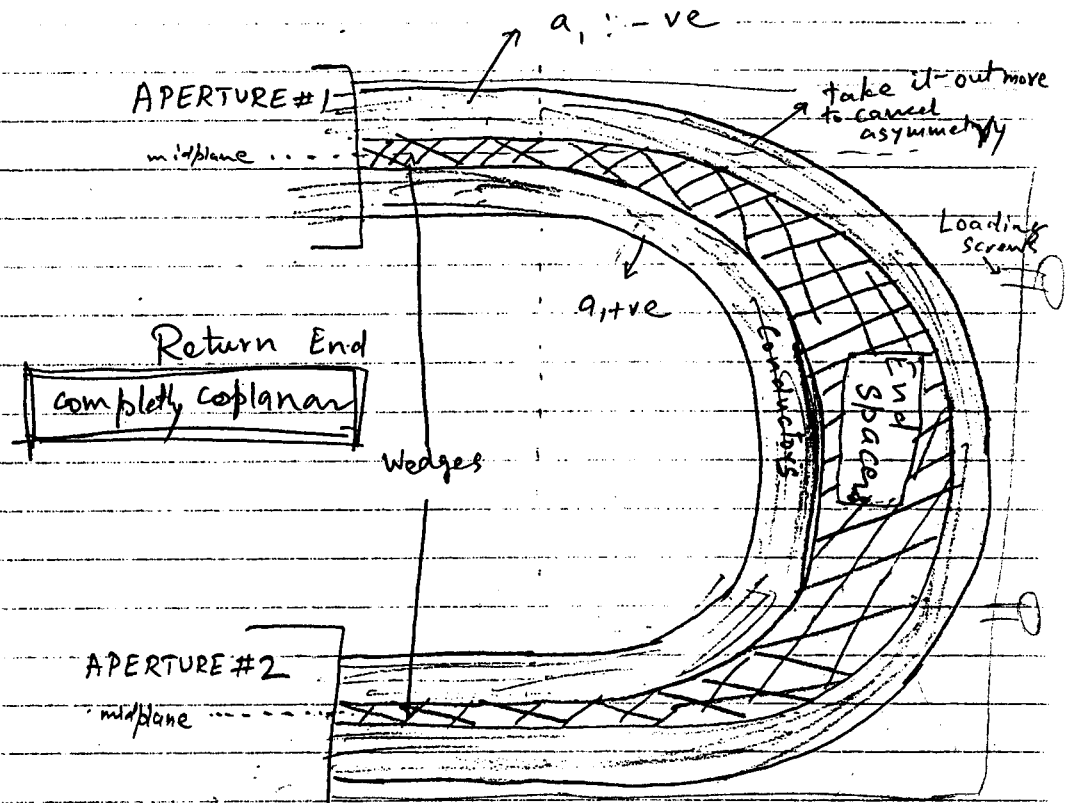 a, : - ve
APERTURE #1
take it out more
to cancel
asymmetry
midplane
Loading
screws
a, +ve
Return End
completly coplanar
Conductors
End
Spacers
Wedges
APERTURE #2
midplane